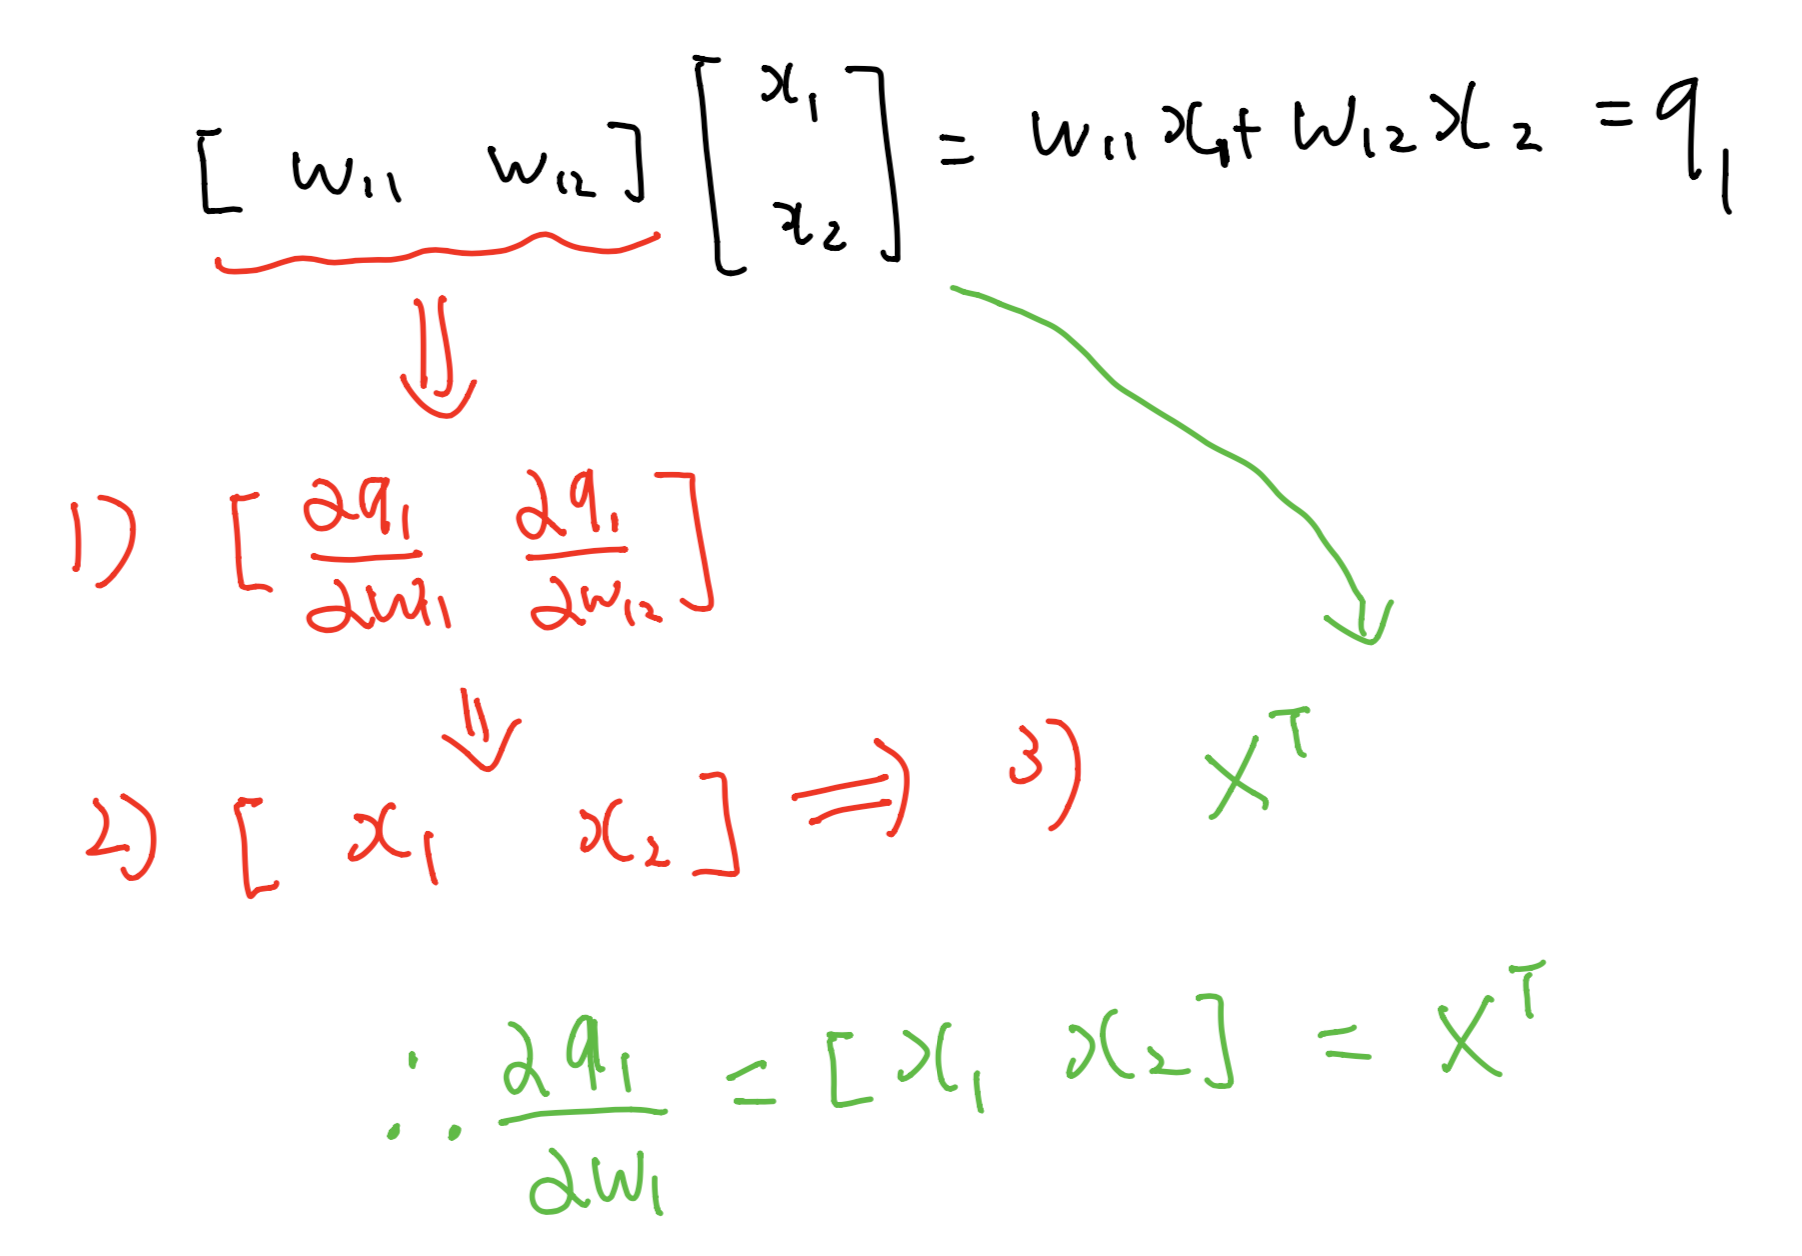 [ w₁₁ w₁₂ ] [ x₁ x₂ ] = w₁₁ x₁ + w₁₂ x₂ = q₁
1) [ ∂q₁/∂w₁₁ ∂q₁/∂w₁₂ ]
2) [ x₁ x₂ ] ⇒ 3) Xᵀ
∴ ∂q₁/∂w₁ = [ x₁ x₂ ] = Xᵀ